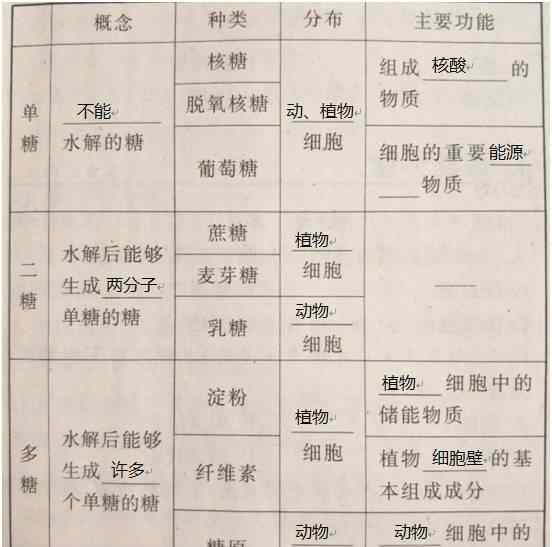 概念 种类 分布 主要功能
单糖
不能
水解的糖
核糖
脱氧核糖
葡萄糖
动、植物
细胞
组成 核酸 的
物质
细胞的重要能源
物质
二糖
水解后能够
生成 两分子
单糖的糖
蔗糖
麦芽糖
乳糖
植物
细胞
动物
细胞
多糖
水解后能够
生成 许多
个单糖的糖
淀粉
纤维素
糖原
植物
细胞
动物
植物 细胞中的
储能物质
植物 细胞壁 的基
本组成成分
动物 细胞中的